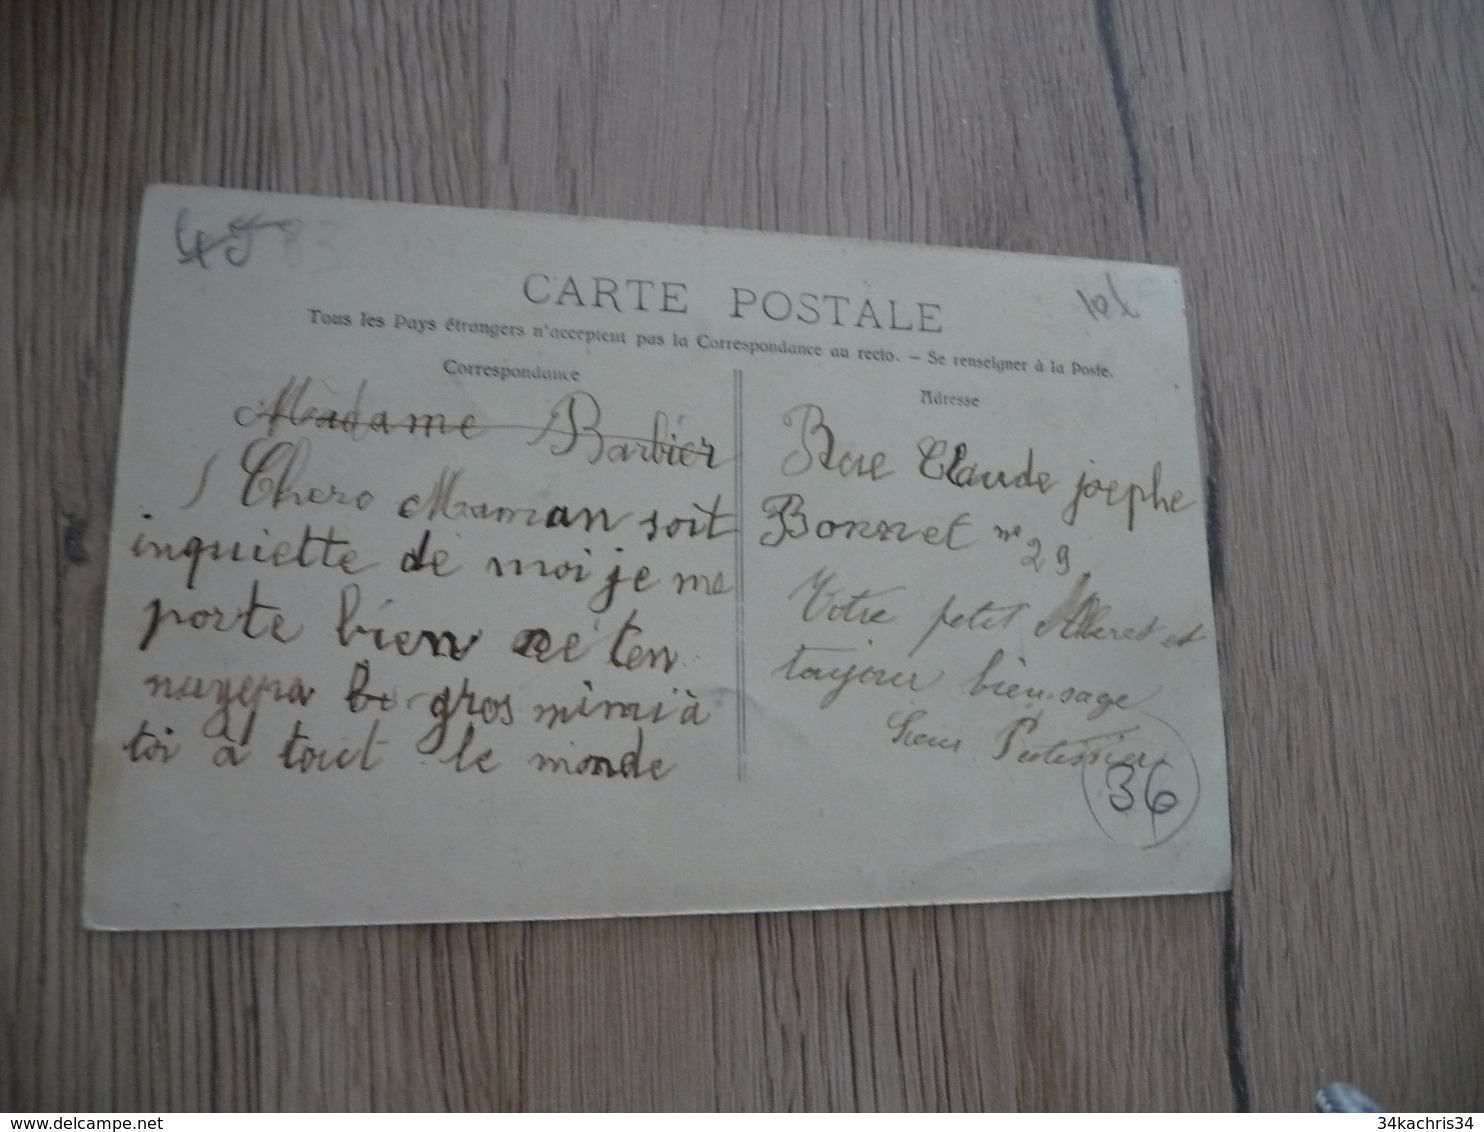 45
10€
CARTE POSTALE
Tous les Pays étrangers n'acceptent pas la Correspondance au recto. — Se renseigner à la Poste.
Correspondance
Madame Barbier
Chero Maman soit
inquiette de moi je me
porte bien ne t'en
nuyepa gros mimi à
toi à tout le monde
Adresse
Rue Claude joephe
Bonnet no 29
Votre petit et
toujour bien sage
Sieur
36
www.delcampe.net
34kachris34